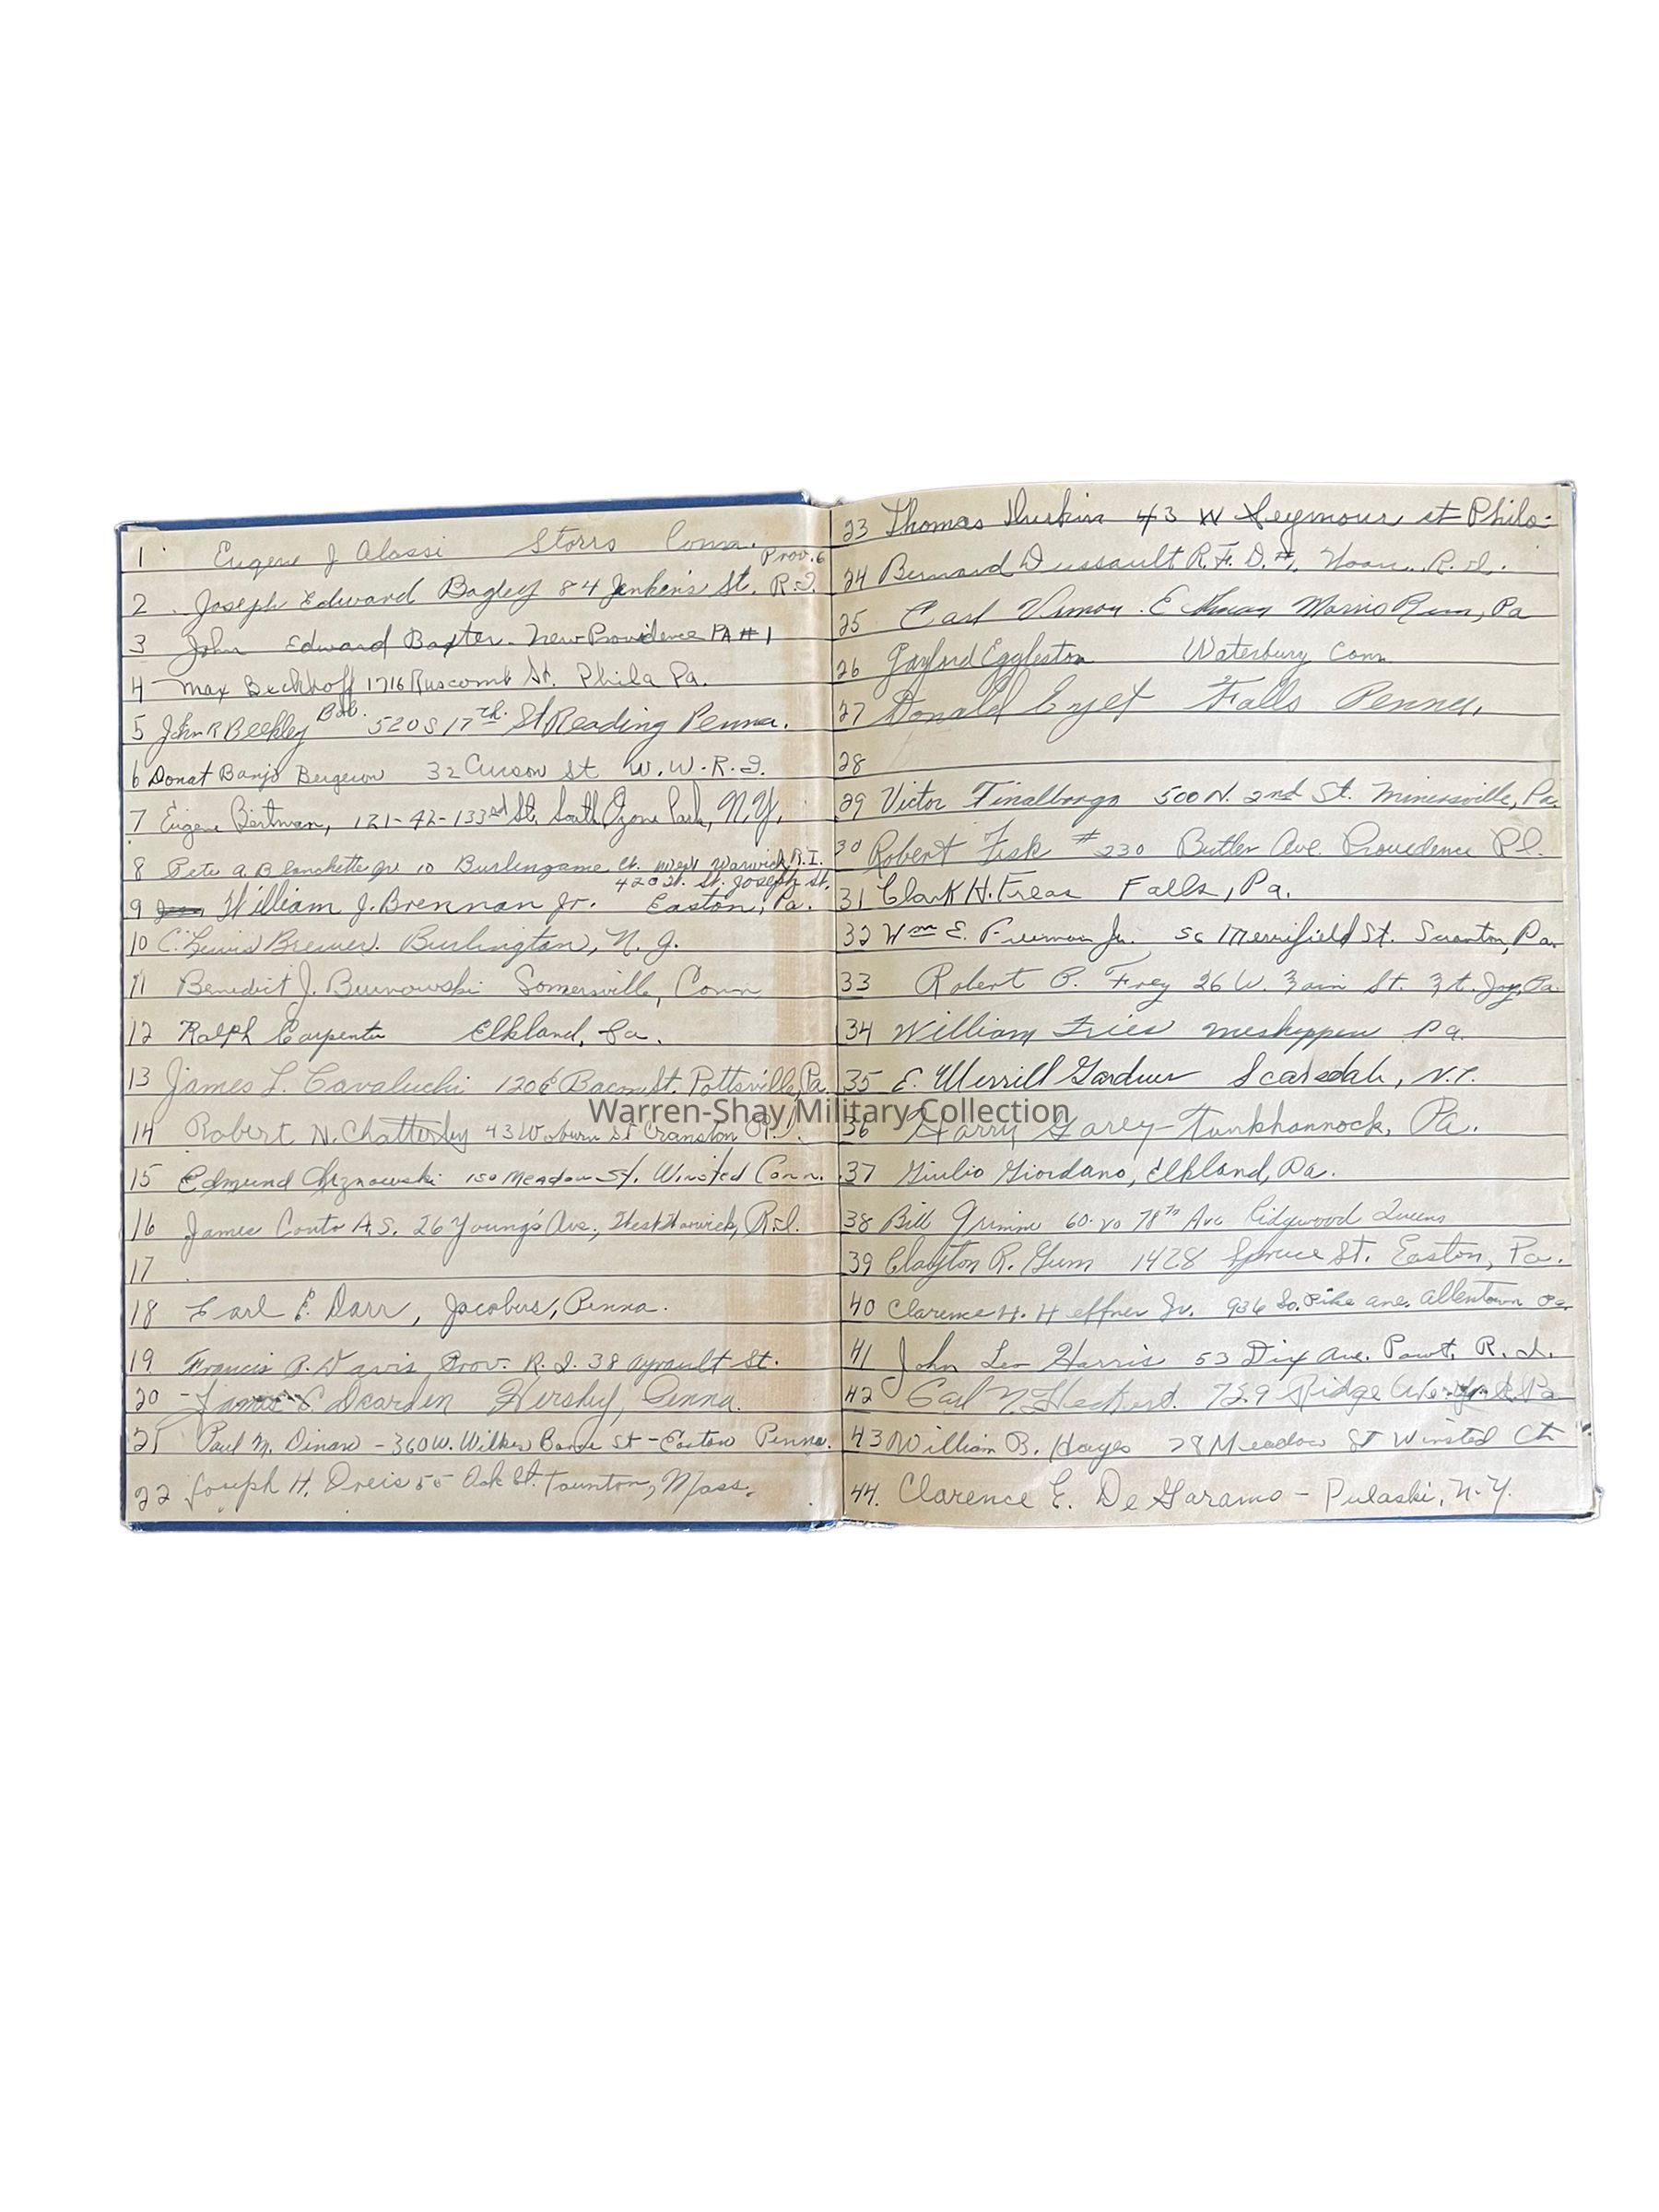 1 Eugene J Alassi Storrs Conn.
Prov. 6
2 Joseph Edward Bagley 84 Jenkins St. R.I.
3 John Edward Baxter - New Providence PA #1
4 Max Beckhoff 1716 Ruscomb St. Phila Pa.
5 John R Beekley Bob. 520 S 17th. St Reading Penna.
6 Donat Banjo Bergeron 32 Curson St W. W. R. I.
7 Eugene Bertman, 121-42-133rd St. South Ozone Park, N.Y.
8 Pete A. Blanchette Jr 10 Burlingame St. West Warwick R.I.
420 W. St. Joseph St.
9 William J. Brennan Jr. Easton, Pa.
10 C. Lewis Brewer. Burlington, N. J.
11 Benedict J. Burnowski Somersville, Conn
12 Ralph Carpenter Elkland, Pa.
13 James L. Cavaluchi 120 E Bacon St. Pottsville, Pa
14 Robert N. Chatterley 43 Woburn St Cranston R.I.
15 Edmund 150 Meadow St. Winsted Conn.
16 James Conto A.S. 26 Young's Ave., West Warwick, R.I.
17
18 Earl E. Darr, Jacobus, Penna.
19 Francis A. Davis Prov. R. I. 38 Ayrault St.
20 James C Dearden Hershey, Penna.
21 Paul M. Dinan - 360 W. Wilkes Barre St - Easton Penna.
22 Joseph H. Dreis 55 Oak St. Taunton, Mass.
23 Thomas Durkin 43 W Seymour st Phila.
24 Bernard Dussault R. F. D. #1, R. I.
25 Carl Vernon Morris Run, Pa
26 Gaylord Eggleston Waterbury Conn
27 Donald Falls Penna.
28
29 Victor Finalborgo 500 N. 2nd St. Minersville, Pa.
30 Robert Fisk #230 Butler Ave. Providence R.I.
31 Clark H. Frear Falls, Pa.
32 Wm E. Freeman Jr. Merrifield St. Scranton, Pa.
33 Robert P. Frey 26 W. Main St. Mt. Joy, Pa.
34 William Fries Meshoppen Pa.
35 E. Merrill Gardner Scarsdale, N.Y.
Warren-Shay Military Collection
36 Harry Garey - Tunkhannock, Pa.
37 Giulio Giordano, Elkland, Pa.
38 Bill Grimm 60-20 78th Ave Ridgewood Queens
39 Clayton R. Gum 1428 Spruce St. Easton, Pa.
40 Clarence H. Heffner Jr. 936 So. Pike Ave. Allentown Pa.
41 John Leo Harris 53 Dix Ave. Pawt. R. I.
42 Carl N. Heckert. 729 Ridge Ave. York Pa
43 William B. Hayes 78 Meadow St Winsted Ct
44. Clarence E. De Garamo - Pulaski, N.Y.